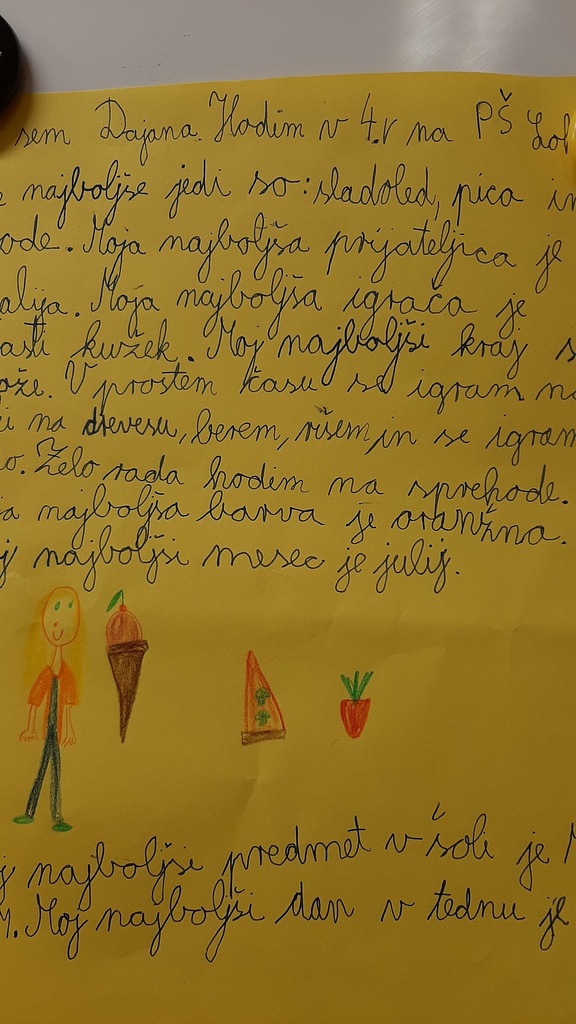 sem Dajana. Hodim v 4.r na PŠ
najboljše jedi so: sladoled, pica in
ode. Moja najboljša prijateljica je
alija. Moja najboljša igrača je
asti kužek. Moj najboljši kraj s
ože. V prostem času se igram na
i na drevesu, berem, rišem, in se igram
o. Zelo rada hodim na sprehode.
ja najboljša barva je oranžna.
j najboljši mesec je julij.
j najboljši predmet v šoli je
Moj najboljši dan v tednu je